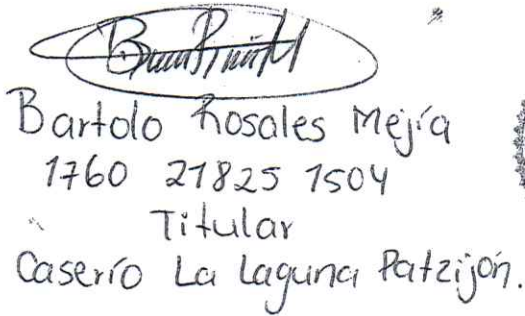 Bartolo Rosales Mejía
1760 21825 1504
Titular
Caserío La Laguna Patzijón.